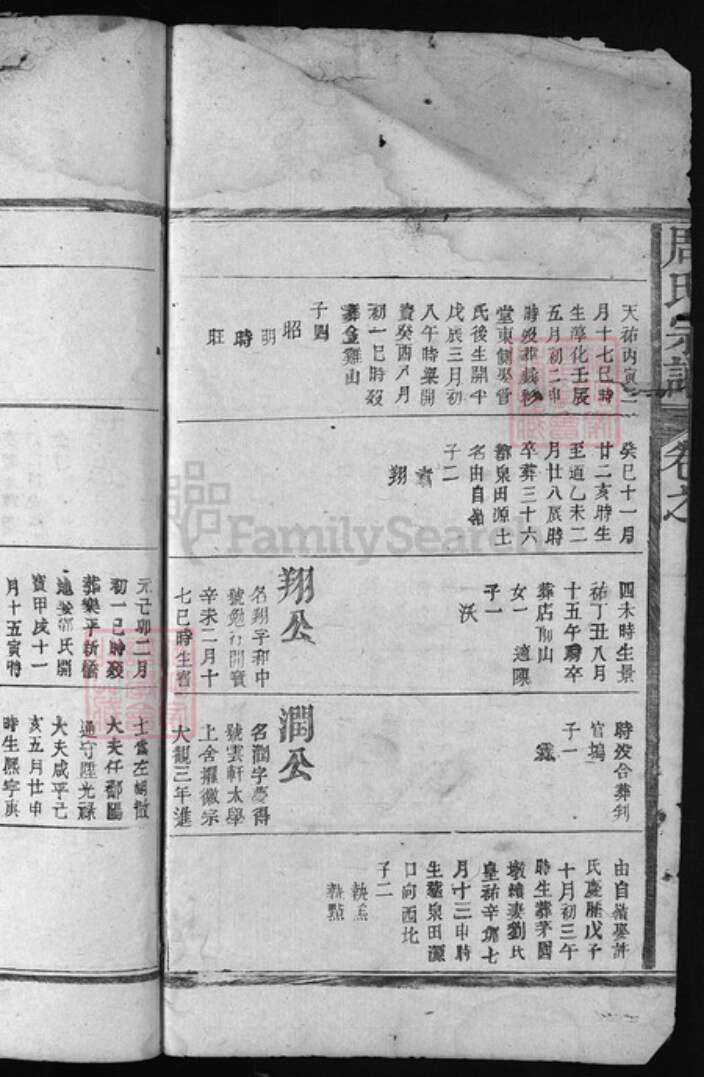 周氏宗譜 卷之
天祐丙寅
月十七巳時
生淳化壬辰
五月初二申
時歿葬
堂東側娶曾
氏後生開平
戊辰三月初
八午時樂開
寶癸酉八月
初一巳時歿
葬金雞山
子四
昭
明
時
旺
癸巳十一月
廿二亥時生
至道乙未二
月廿八辰時
卒葬三十六
都泉田源土
名由自嶺
子二
翔
四未時生景
祐丁丑八月
十五午時卒
葬店前山
女一 適陳
子一
沃
翔公
名翔字和中
號勉行開寶
辛未二月十
七巳時生
時歿合葬判
官塢
子一
潤公
名潤字慶得
號雲軒太學
上舍擢徽宗
大觀三年進
由自嶺娶許
氏慶曆戊子
十月初三午
時生葬茅園
墩續妻劉氏
皇祐辛卯七
月十三申時
生葬泉田源
口向西北
子二
執點
元己卯二月
初一巳時歿
葬樂平新橋
地娶 氏開
寶甲戌十一
月十五寅時
士當左朝散
大夫任鄱陽
通守陞光祿
大夫咸平己
亥五月廿申
時生熙寧庚
FamilySearch